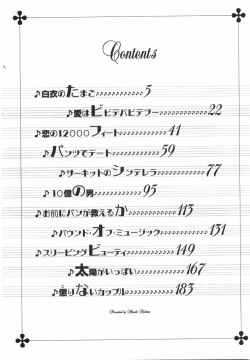 Contents
♪白衣のたまご♪♪♪♪♪♪♪♪♪♪♪5
♪愛はビビデバビデブー♪♪♪♪♪♪♪♪♪22
♪恋の12000フィート♪♪♪♪♪♪♪♪41
♪パンツでデート♪♪♪♪♪♪♪♪♪♪59
♪サーキットのシンデレラ♪♪♪♪♪♪♪♪77
♪10億の男♪♪♪♪♪♪♪♪95
♪お前にパンが救えるか♪♪♪♪♪♪♪♪113
♪バウンド・オブ・ミュージック♪♪♪♪♪131
♪スリーピングビューティ♪♪♪♪♪♪149
♪太陽がいっぱい♪♪♪♪♪♪167
♪懲りないカップル♪♪♪♪♪♪183
Presented by